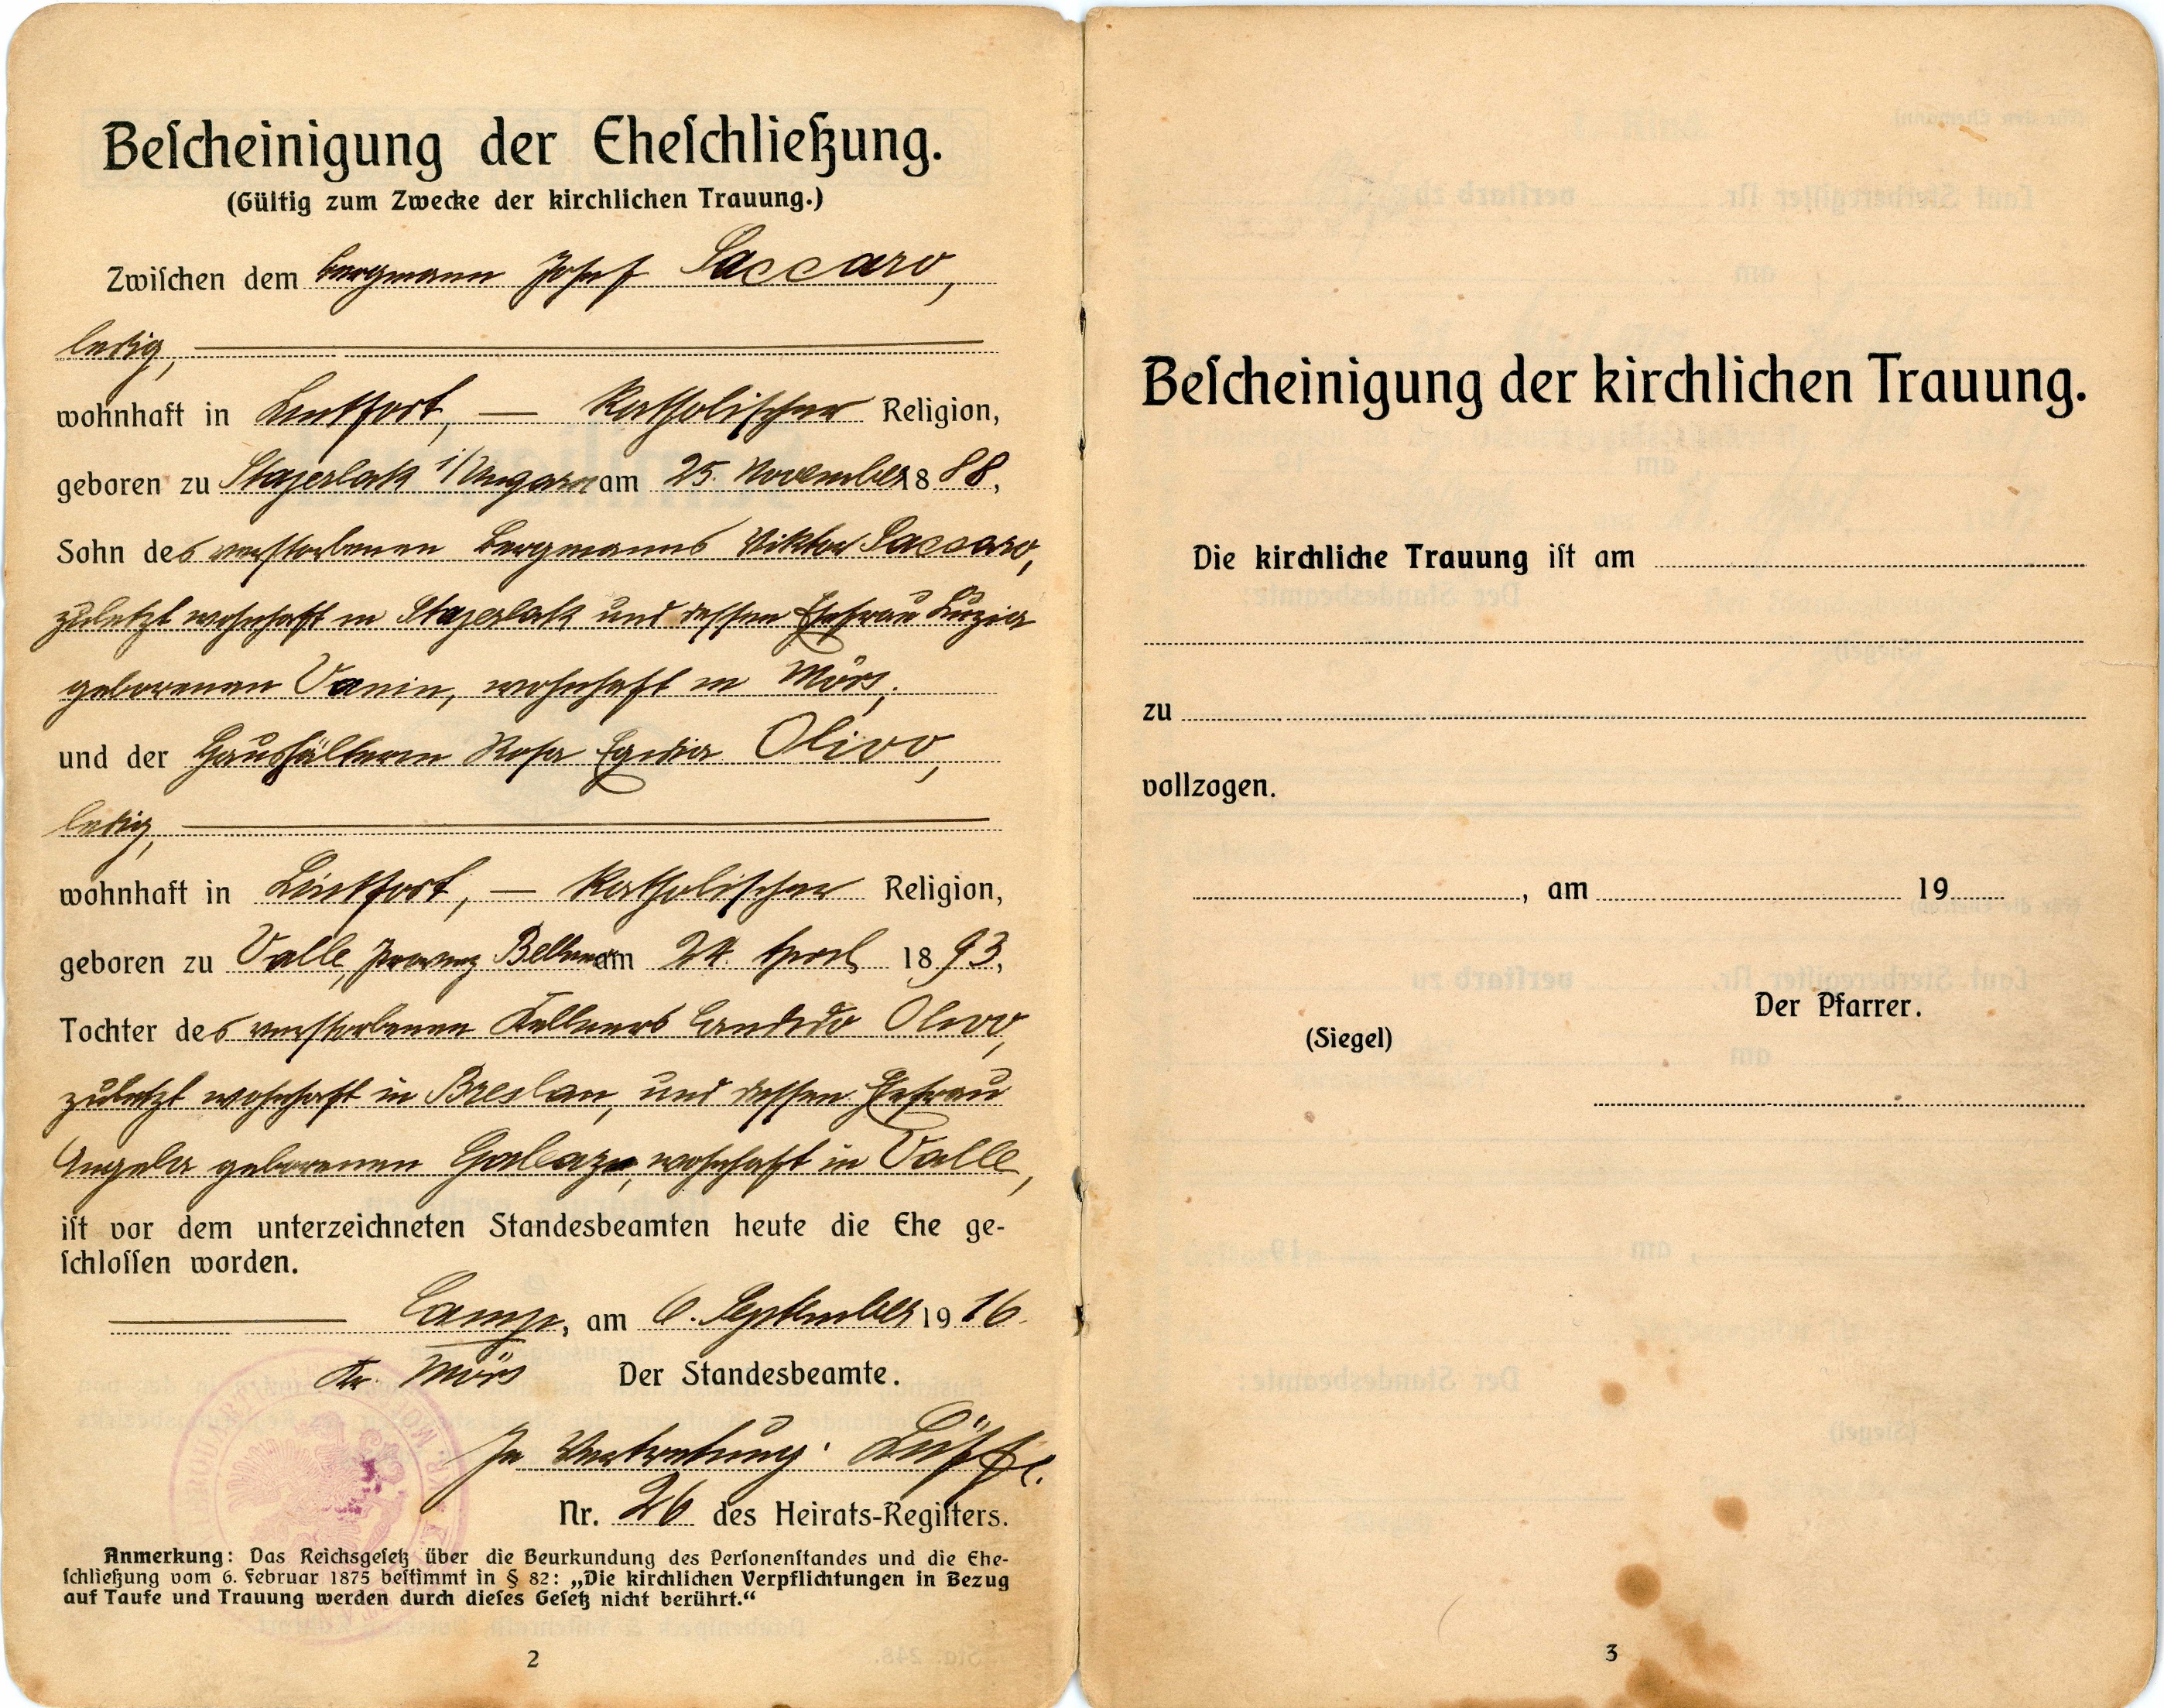 Bescheinigung der Eheschließung.
(Gültig zum Zwecke der kirchlichen Trauung.)
Zwischen dem Bergmann Josef Saccaro,
ledig,
wohnhaft in Lintfort, — katholischer Religion,
geboren zu Stajerlak i/Ungarn am 25. November 1888,
Sohn des verstorbenen Bergmanns Viktor Saccaro,
zuletzt wohnhaft in Stajerlak und dessen Ehefrau Luzia
geborenen Vanin, wohnhaft in Mörs,
und der Haushälterin Rosa Egidia Olivo,
ledig,
wohnhaft in Lintfort, — katholischer Religion,
geboren zu Valle, Provinz Belluno am 24. April 1893,
Tochter des verstorbenen Kellners Candido Olivo,
zuletzt wohnhaft in Breslau, und dessen Ehefrau
Angela geborenen wohnhaft in Valle,
ist vor dem unterzeichneten Standesbeamten heute die Ehe ge-
schlossen worden.
Camp, am 6. September 1916.
Kr. Mörs Der Standesbeamte.
In Vertretung:
Nr. 26 des Heirats-Registers.
Anmerkung: Das Reichsgesetz über die Beurkundung des Personenstandes und die Ehe-
schließung vom 6. Februar 1875 bestimmt in § 82: „Die kirchlichen Verpflichtungen in Bezug
auf Taufe und Trauung werden durch dieses Gesetz nicht berührt.“
2
Bescheinigung der kirchlichen Trauung.
Die kirchliche Trauung ist am
zu
vollzogen.
, am 19
Der Pfarrer.
(Siegel)
3